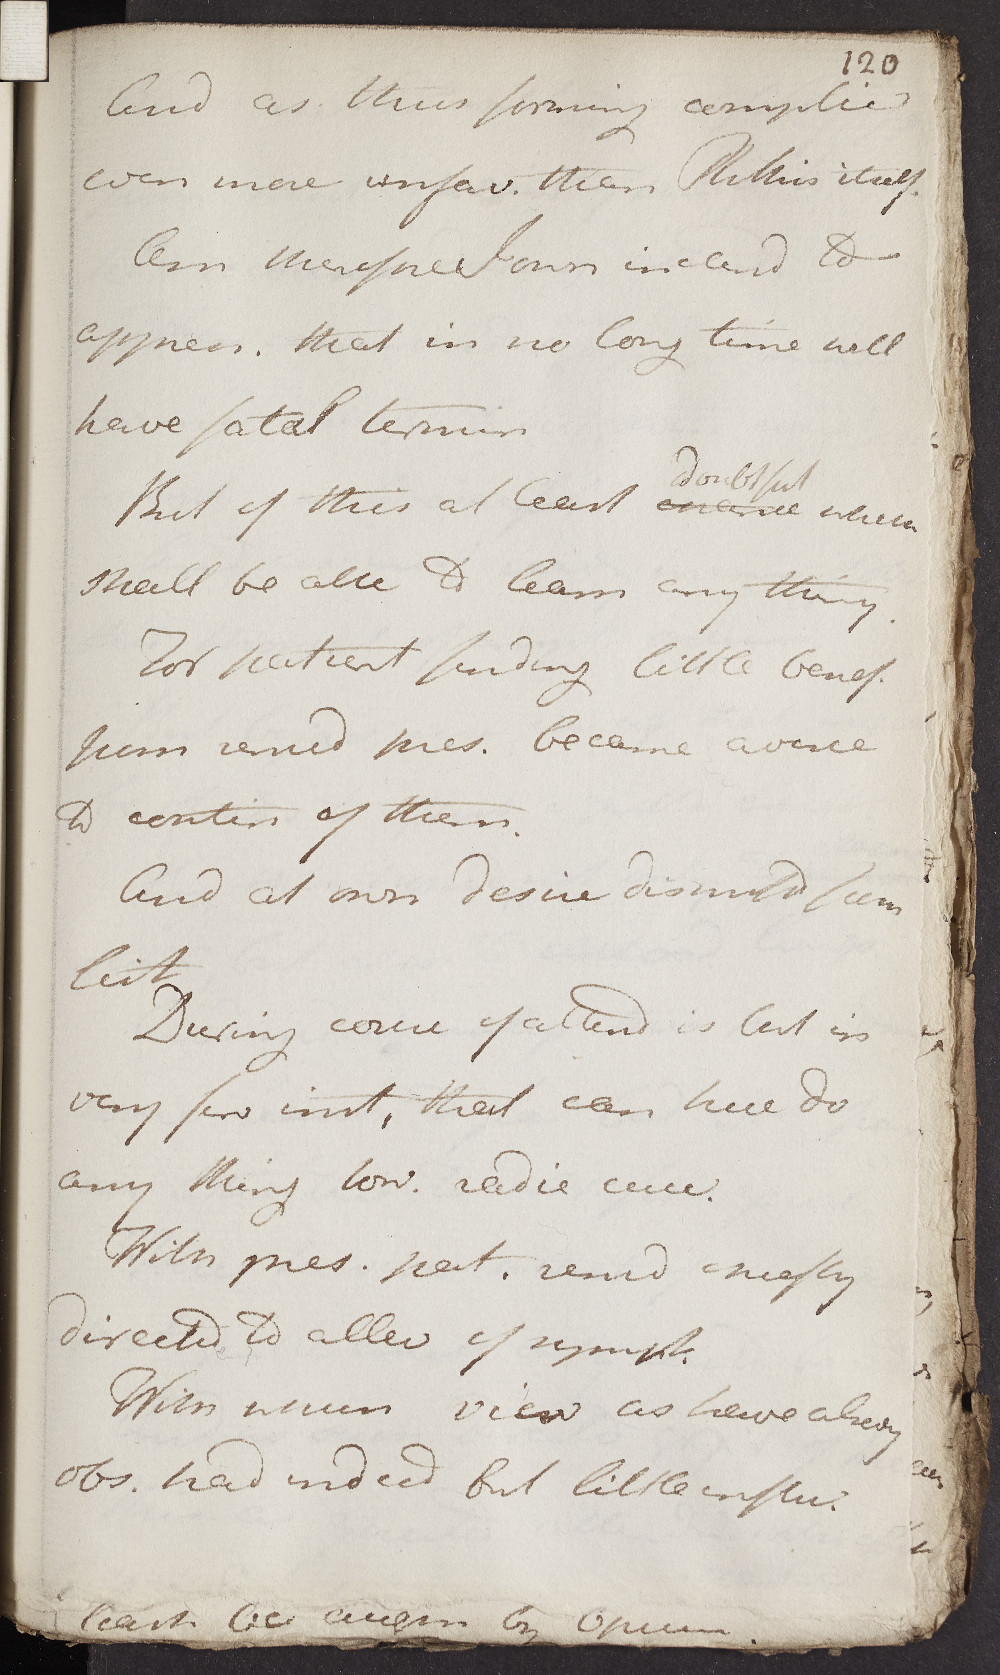 120
And as thus forming complic
even more unfav. than Phthisis itself.
Am therefore I own inclend to
appreh. that in no long time will
have fatal termin
But of this at least doubtful whether
shall be able to learn any thing.
For patient finding little benef.
from remed pres. became averse
to contin of them.
And at own desire dismissd from
list
During course of attend is but in
very few inst, that can here do
any thing tow. radic cure.
With pres. pat. remed chiefly
directed to allev of sympt.
With which view as have alredy
obs. had indeed but little influ.
least be augm by Opium.